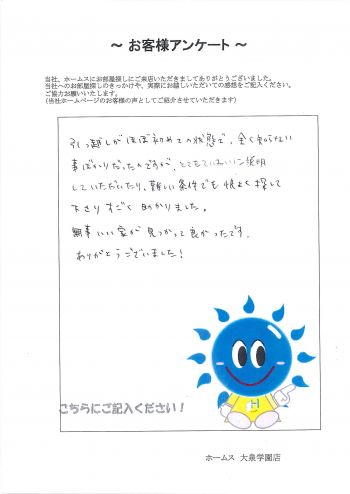 ～ お客様アンケート ～
当社、ホームスにお部屋探しにご来店いただきましてありがとうございました。
当社へのお部屋探しのきっかけや、実際にお越しいただいての感想をご記入ください。
ご協力お願いいたします。
（当社ホームページのお客様の声としてご紹介させていただきます）
引っ越しがほぼ初めての状態で、全く知らない
事ばかりだったのですが、とてもていねいに説明
していただいたり、難しい条件でも快よく探して
下さりすごく助かりました。
無事いい家が見つかって良かったです。
ありがとうございました！
H
こちらにご記入ください！
ホームス 大泉学園店